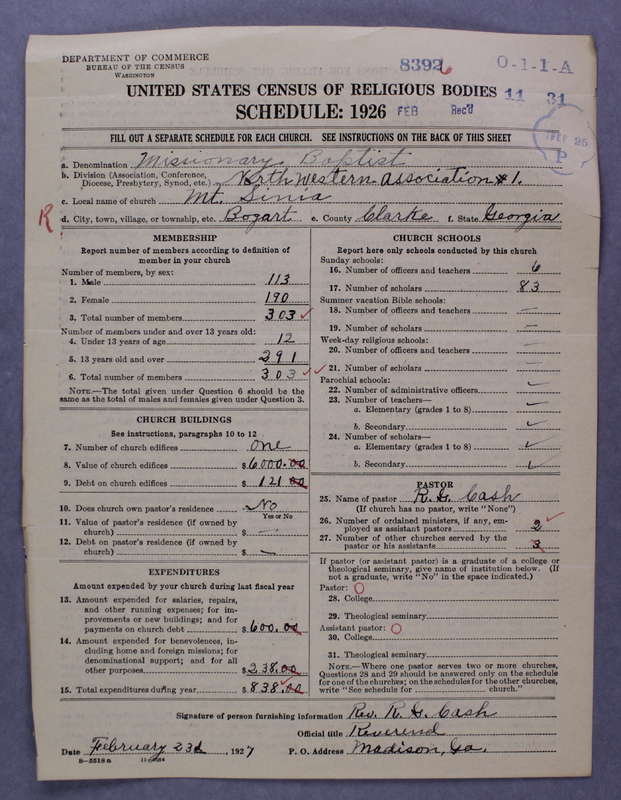 DEPARTMENT OF COMMERCE
BUREAU OF THE CENSUS
WASHINGTON
83926
O-1-1-A
UNITED STATES CENSUS OF RELIGIOUS BODIES
SCHEDULE: 1926
FEB Rec'd 11 31
FEB 25
P
FILL OUT A SEPARATE SCHEDULE FOR EACH CHURCH. SEE INSTRUCTIONS ON THE BACK OF THIS SHEET
a. Denomination Missionary Baptist
b. Division (Association, Conference, Diocese, Presbytery, Synod, etc.) North Western Association #1.
c. Local name of church Mt. Sinia
R
d. City, town, village, or township, etc. Bogart e. County Clarke f. State Georgia
MEMBERSHIP
Report number of members according to definition of
member in your church
Number of members, by sex:
1. Male 113
2. Female 190
3. Total number of members 303
Number of members under and over 13 years old:
4. Under 13 years of age 12
5. 13 years old and over 291
6. Total number of members 303
NOTE.—The total given under Question 6 should be
same as the total of males and females given under Question 3.
CHURCH BUILDINGS
See instructions, paragraphs 10 to 12
7. Number of church edifices One
8. Value of church edifices $6000.00
9. Debt on church edifices $ 121 00
10. Does church own pastor's residence No
Yes or No
11. Value of pastor's residence (if owned by
church) $ —
12. Debt on pastor's residence (if owned by
church) $ —
EXPENDITURES
Amount expended by your church during last fiscal year
13. Amount expended for salaries, repairs,
and other running expenses; for im-
provements or new buildings; and for
payments on church debt $600.00
14. Amount expended for benevolences, in-
cluding home and foreign missions; for
denominational support; and for all
other purposes $238.00
15. Total expenditures during year $838.00
CHURCH SCHOOLS
Report here only schools conducted by this church
Sunday schools:
16. Number of officers and teachers 6
17. Number of scholars 83
Summer vacation Bible schools:
18. Number of officers and teachers —
19. Number of scholars —
Week-day religious schools:
20. Number of officers and teachers —
21. Number of scholars
Parochial schools:
22. Number of administrative officers
23. Number of teachers—
a. Elementary (grades 1 to 8)
b. Secondary
24. Number of scholars—
a. Elementary (grades 1 to 8)
b. Secondary
PASTOR
25. Name of pastor R. G. Cash
(If church has no pastor, write "None")
26. Number of ordained ministers, if any, em-
ployed as assistant pastors 2
27. Number of other churches served by the
pastor or his assistants 3
If pastor (or assistant pastor) is a graduate of a college or
theological seminary, give name of institution below. (If
not a graduate, write "No" in the space indicated.)
Pastor:
28. College
29. Theological seminary
Assistant pastor:
30. College
31. Theological seminary
NOTE.—Where one pastor serves two or more churches,
Questions 28 and 29 should be answered only on the schedule
for one of the churches; on the schedules for the other churches,
write "See schedule for church."
Signature of person furnishing information Rev. R. G. Cash
Official title Reverend
Date February 23d, 1927 P. O. Address Madison, Ga.
8—5518a